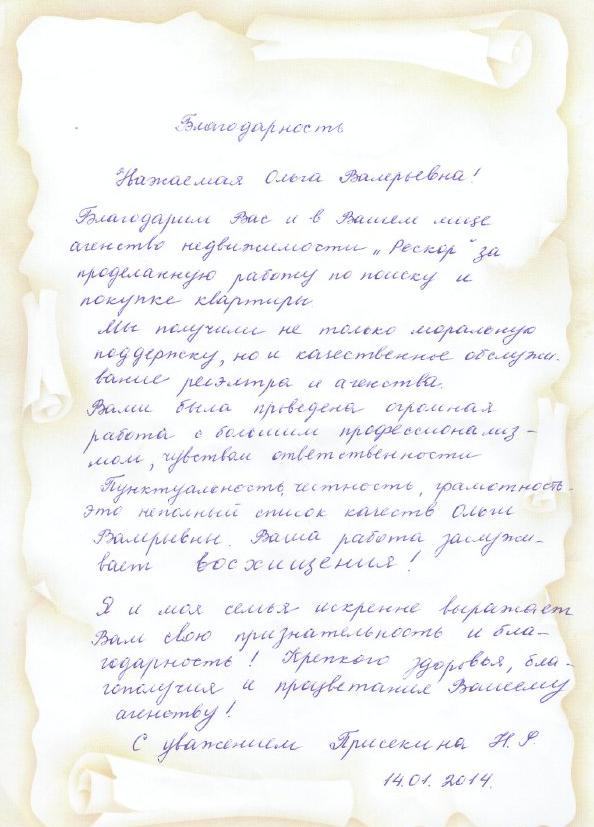 Благодарность
Уважаемая Ольга Валерьевна!
Благодарим Вас и в Вашем лице
агенство недвижимости „Рескор“ за
проделанную работу по поиску и
покупке квартиры
Мы получили не только моральную
поддержку, но и качественное обслужи-
вание риэлтра и агенства.
Вами была проведена огромная
работа с большим профессионализ-
мом, чувством ответственности
Пунктуальность, честность, грамотность-
это неполный список качеств Ольги
Валерьевны. Ваша работа заслужи-
вает восхищения!
Я и моя семья искренне выражает
Вам свою признательность и бла-
годарность! Крепкого здоровья, бла-
гополучия и процветания Вашему
агенству!
С уважением Присекина Н.Ф.
14.01.2014.